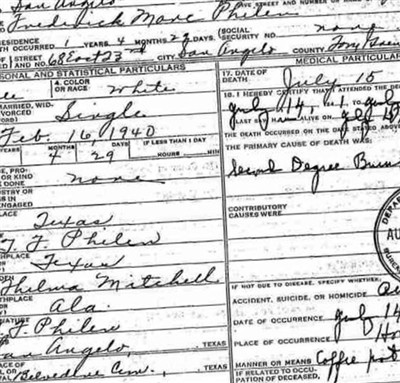 San Angelo
Frederick Marc Philen
RESIDENCE 1 YEARS, 4 MONTHS 29 DAYS SOCIAL SECURITY NO. none
DEATH OCCURRED
STREET AND NO. 68 East 23rd CITY San Angelo COUNTY Tom
PERSONAL AND STATISTICAL PARTICULARS MEDICAL PARTICULARS
COLOR OR RACE white 17. DATE OF DEATH July 15
MARRIED, WID- Single 18. I HEREBY CERTIFY THAT I ATTENDED THE DEC
July 14, 1 to July
Feb. 16, 1940 LAST ALIVE ON July 15
MONTHS DAYS IF LESS THAN 1 DAY THE DEATH OCCURRED ON THE DATE STATED ABOVE
4 29 HOURS MIN THE PRIMARY CAUSE OF DEATH WAS:
OR KIND DONE none Second Degree Burns
INDUSTRY OR
CONTRIBUTORY CAUSES WERE:
Texas
T. F. Philen AU
Texas
Thelma Mitchell IF NOT DUE TO DISEASE, SPECIFY WHETHER,
Ala. ACCIDENT, SUICIDE, OR HOMICIDE
DATE OF OCCURRENCE July 14
T. F. Philen PLACE OF OCCURRENCE Ho
San Angelo, TEXAS MANNER OR MEANS Coffee pot
Belvedere Cem., TEXAS IF RELATED TO OCCU-
PATION OF DECEASED,